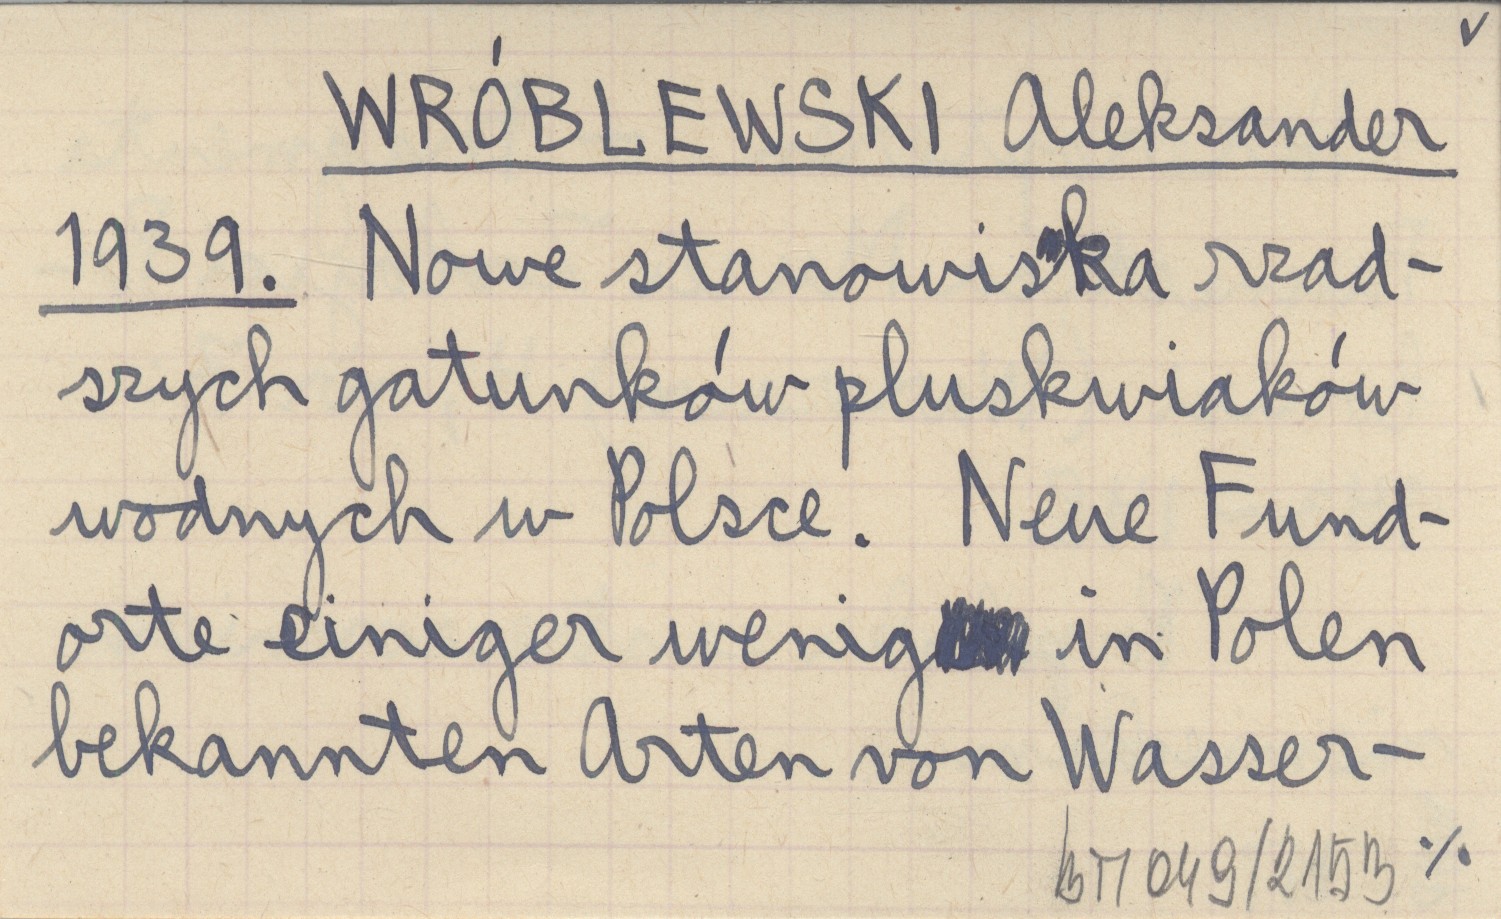 v
WRÓBLEWSKI Aleksander
1939. Nowe stanowiska rzad-
szych gatunków pluskwiaków
wodnych w Polsce. Neue Fund-
orte einiger wenig in Polen
bekannten Arten von Wasser-
049/2153 ./.